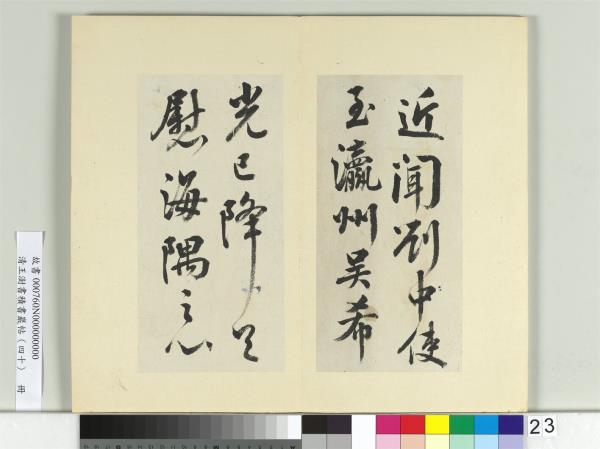 近聞劉中使
至瀛州吳希
光已降足
慰海隅之心
故書000760N000000000
清王澍書積書巖帖(四十) 冊
23